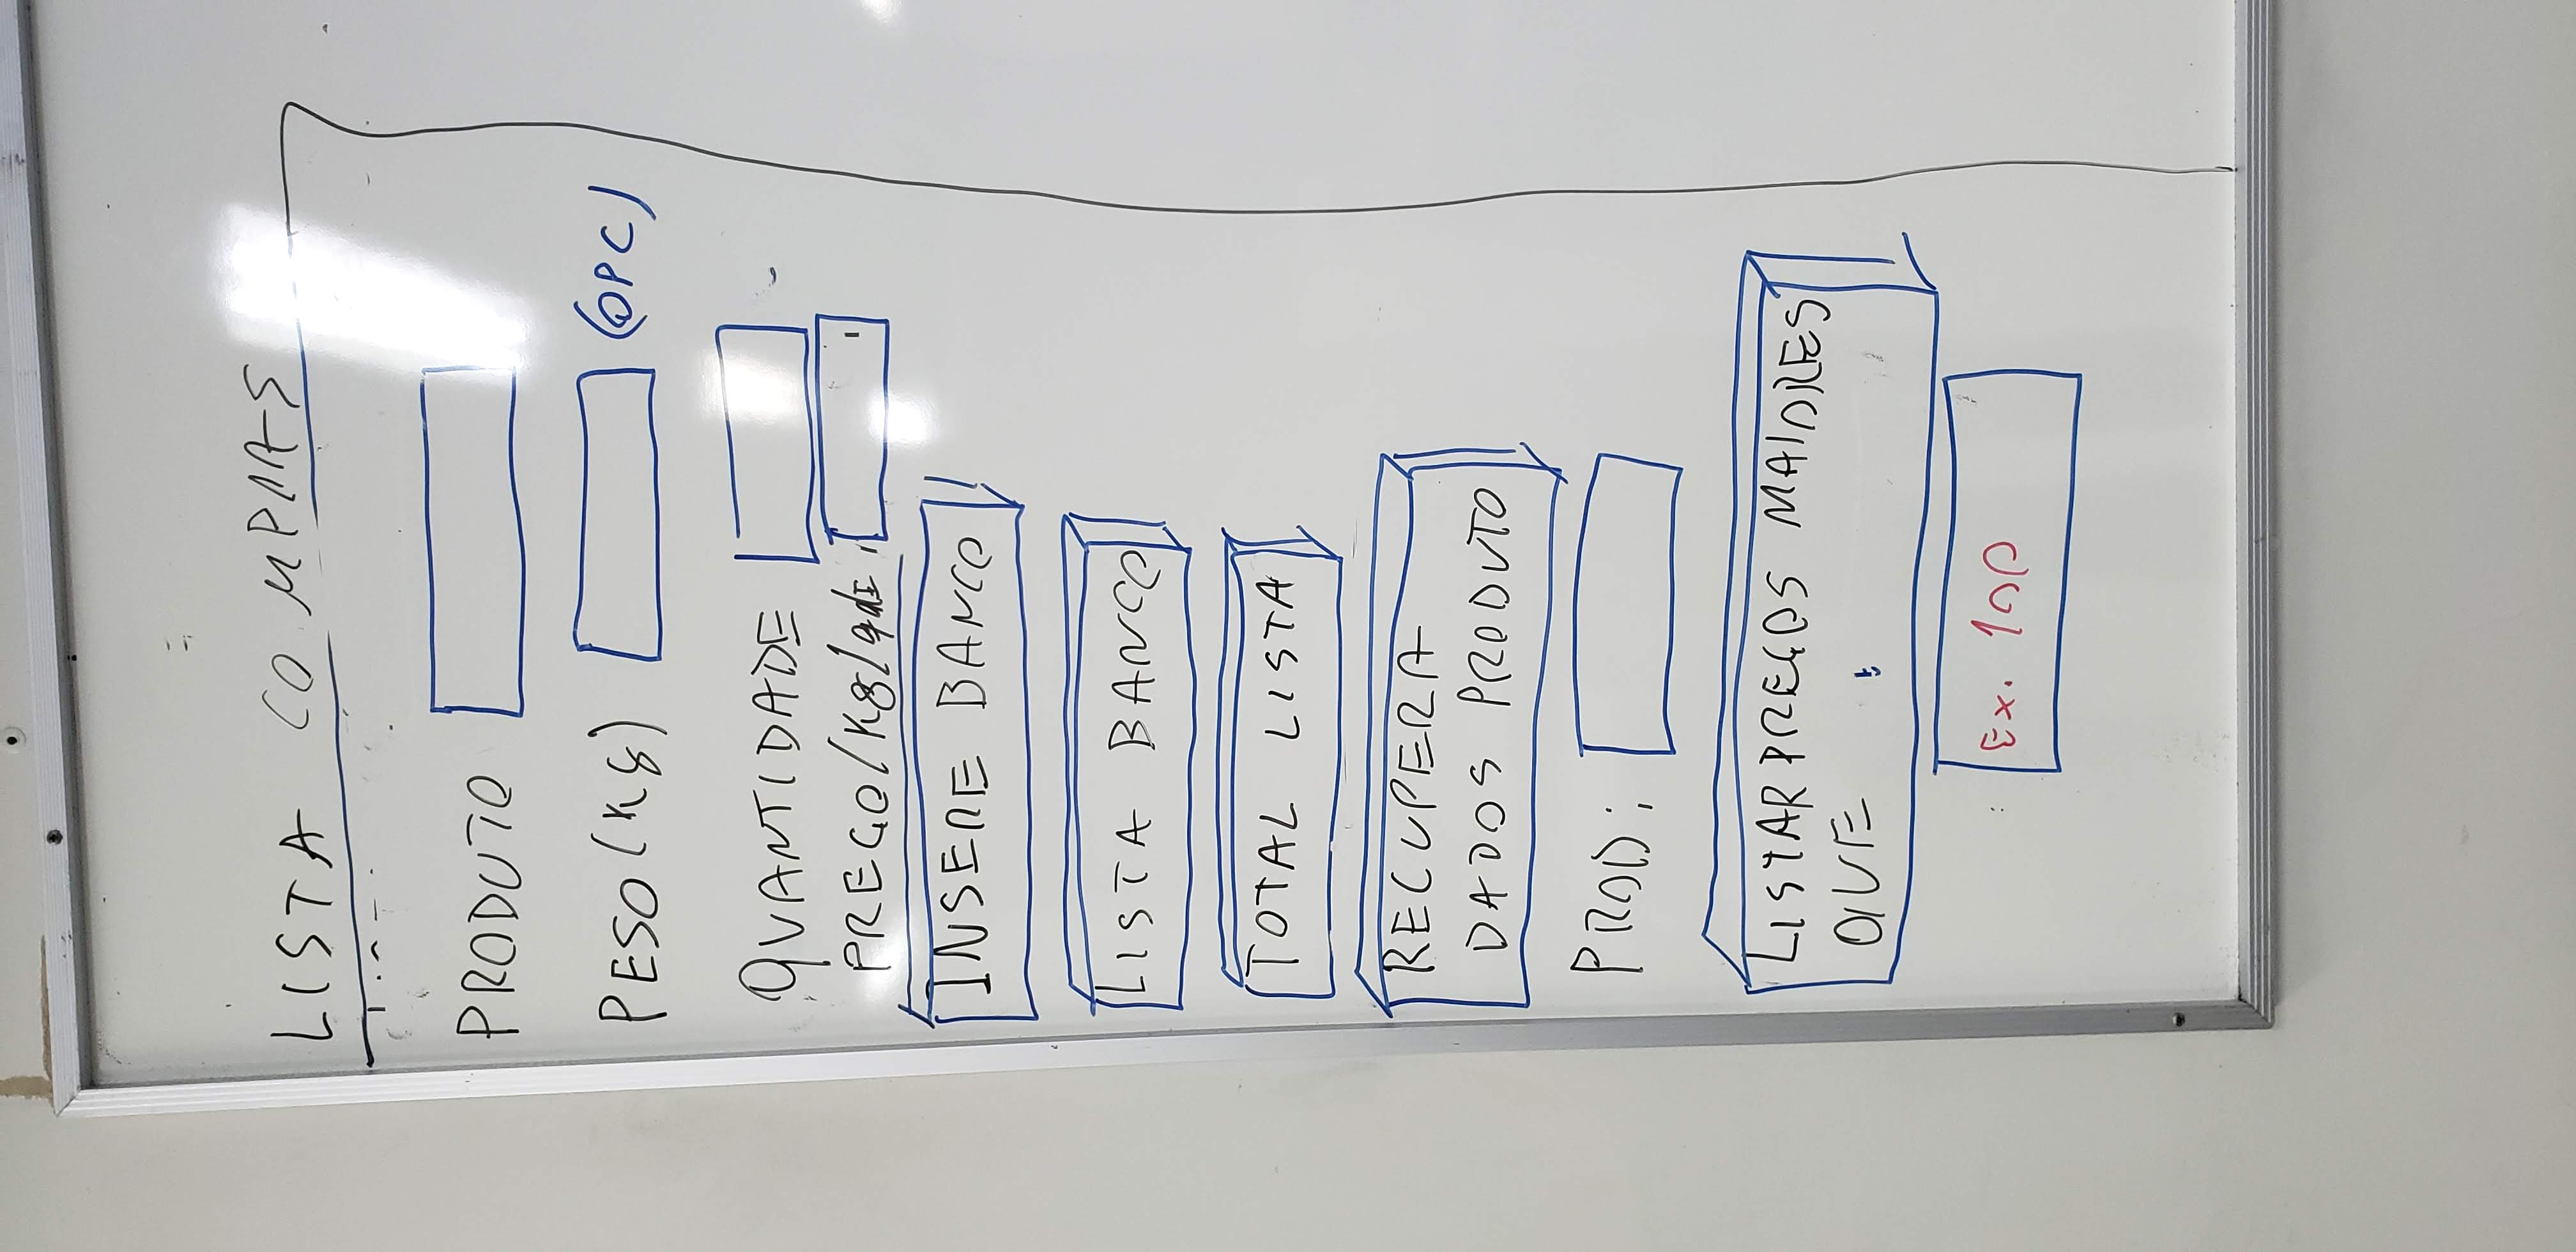 LISTA COMPRAS
PRODUTO
PESO (Kg) (OPC)
QUANTIDADE
PREÇO/Kg/qde
INSERE BANCO
LISTA BANCO
TOTAL LISTA
RECUPERA
DADOS PRODUTO
PROD:
LISTAR PREÇOS MAIORES
QUE
Ex. 100